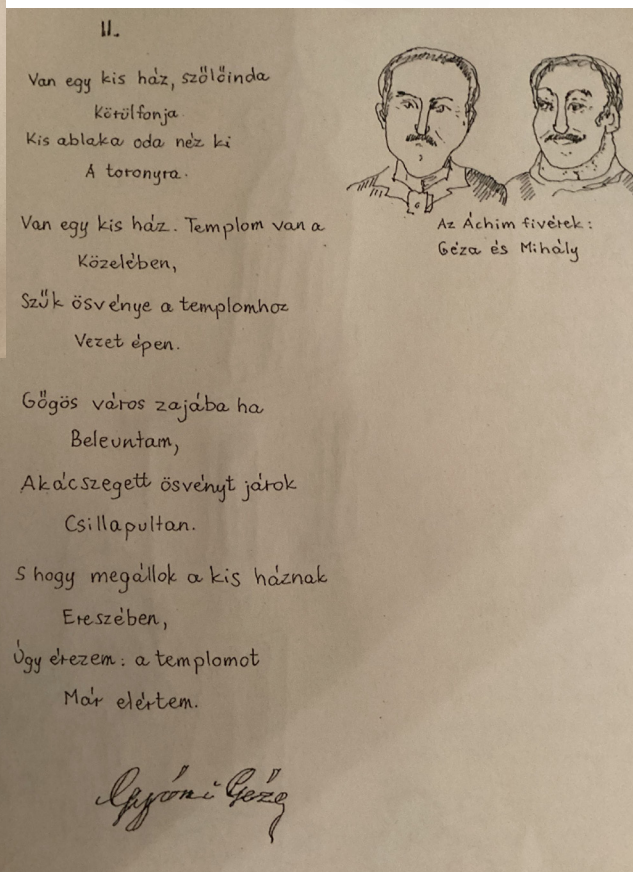 II.
Van egy kis ház, szőlőinda
Körülfonja.
Kis ablaka oda néz ki
A toronyra.
Van egy kis ház. Templom van a
Közelében,
Szűk ösvénye a templomhoz
Vezet épen.
Gőgös város zajába ha
Beleuntam,
Akácszegett ösvényt járok
Csillapultan.
S hogy megállok a kis háznak
Ereszében,
Úgy érezem: a templomot
Már elértem.
Gyóni Géza
Az Áchim fivérek:
Géza és Mihály